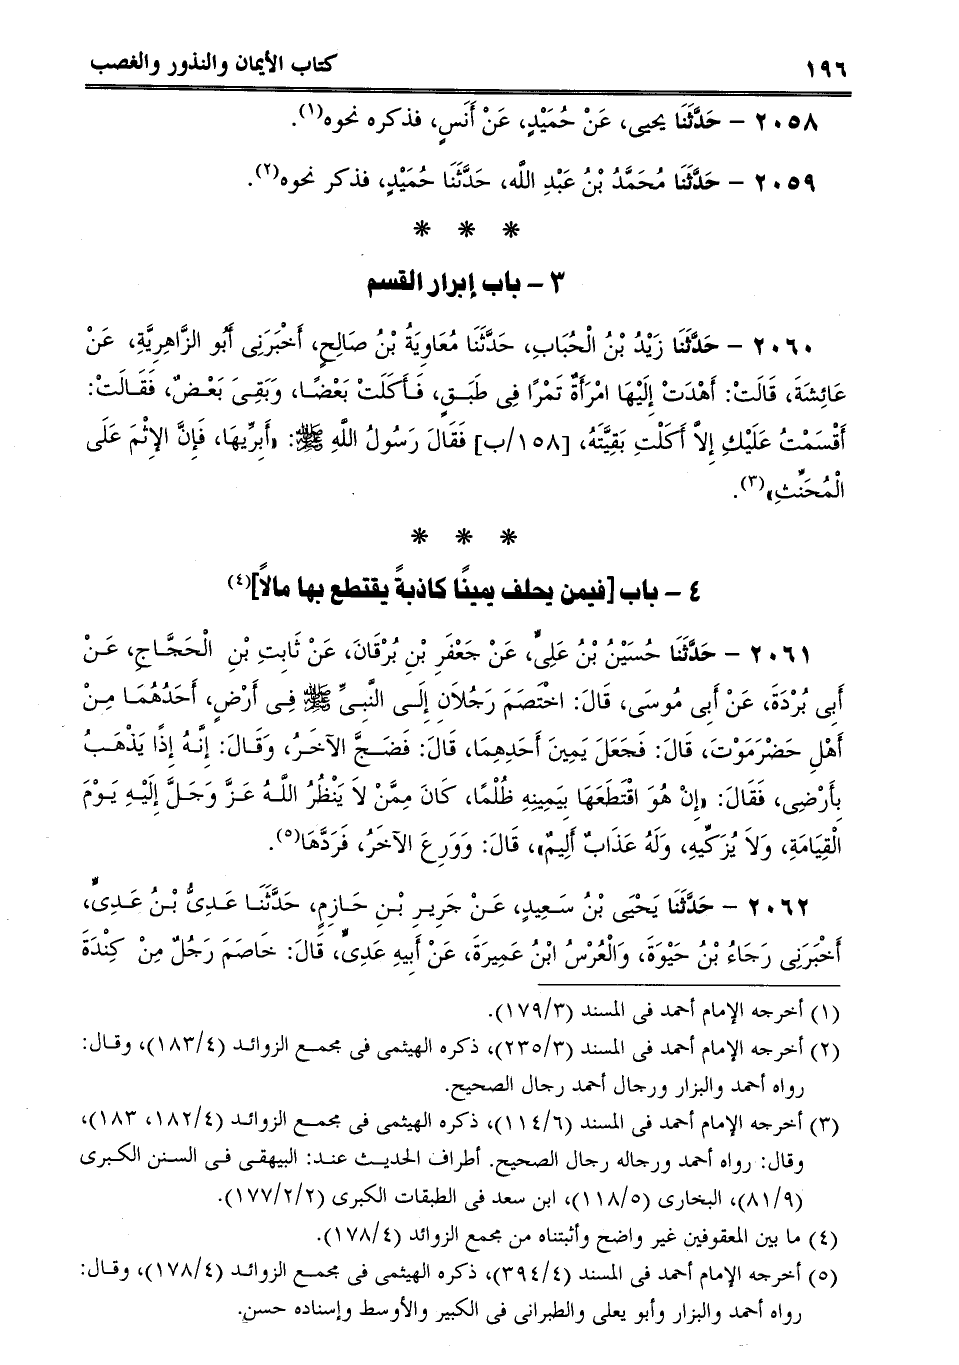 ١٩٦ كتاب الأيمان والنذور والغصب
٢٠٥٨ – حَدَّثَنَا يحيى، عَنْ حُمَيْدٍ، عَنْ أَنَسٍ، فذكره نحوه(١).
٢٠٥٩ – حَدَّثَنَا مُحَمَّدُ بْنُ عَبْدِ اللَّه، حَدَّثَنَا حُمَيْدٍ، فذكر نحوه(٢).
* * *
٣ – باب إبرار القسم
٢٠٦٠ – حَدَّثَنَا زَيْدُ بْنُ الْحُبَابِ، حَدَّثَنَا مُعَاوِيَةُ بْنُ صَالِحٍ، أَخْبَرَنِى أَبُو الزَّاهِرِيَّةِ، عَنْ
عَائِشَةَ، قَالَتْ: أَهْدَتْ إِلَيْهَا امْرَأَةٌ تَمْرًا فِى طَبَقٍ، فَأَكَلَتْ بَعْضًا، وَبَقِىَ بَعْضٌ، فَقَالَتْ:
أَقْسَمْتُ عَلَيْكِ إِلاَّ أَكَلْتِ بَقِيَّتَهُ، [١٥٨/ب] فَقَالَ رَسُولُ اللَّهِ ﷺ: «أَبِرِّيهَا، فَإِنَّ الإِثْمَ عَلَى
الْمُحَنِّثِ»(٣).
* * *
٤ – باب [فيمن يحلف يمينًا كاذبةً يقتطع بها مالاً](٤)
٢٠٦١ – حَدَّثَنَا حُسَيْنُ بْنُ عَلِىٍّ، عَنْ جَعْفَرِ بْنِ بُرْقَانَ، عَنْ ثَابِتِ بْنِ الْحَجَّاجِ، عَنْ
أَبِى بُرْدَةَ، عَنْ أَبِى مُوسَى، قَالَ: اخْتَصَمَ رَجُلاَنِ إِلَى النَّبِىِّ ﷺ فِى أَرْضٍ، أَحَدُهُمَا مِنْ
أَهْلِ حَضْرَمَوْتَ، قَالَ: فَجَعَلَ يَمِينَ أَحَدِهِمَا، قَالَ: فَضَجَّ الآخَرُ، وَقَالَ: إِنَّهُ إِذًا يَذْهَبُ
بِأَرْضِى، فَقَالَ: «إِنْ هُوَ اقْتَطَعَهَا بِيَمِينِهِ ظُلْمًا، كَانَ مِمَّنْ لاَ يَنْظُرُ اللَّهُ عَزَّ وَجَلَّ إِلَيْهِ يَوْمَ
الْقِيَامَةِ، وَلاَ يُزَكِّيهِ، وَلَهُ عَذَابٌ أَلِيمٌ»، قَالَ: وَوَرِعَ الآخَرُ، فَرَدَّهَا(٥).
٢٠٦٢ – حَدَّثَنَا يَحْيَى بْنُ سَعِيدٍ، عَنْ جَرِيرِ بْنِ حَازِمٍ، حَدَّثَنَا عَدِىُّ بْنُ عَدِىٍّ،
أَخْبَرَنِى رَجَاءُ بْنُ حَيْوَةَ، وَالْعُرْسُ ابْنُ عَمِيرَةَ، عَنْ أَبِيهِ عَدِىٍّ، قَالَ: خَاصَمَ رَجُلٌ مِنْ كِنْدَةَ
(١) أخرجه الإمام أحمد فى المسند (١٧٩/٣).
(٢) أخرجه الإمام أحمد فى المسند (٢٣٥/٣)، ذكره الهيثمى فى مجمع الزوائد (١٨٣/٤)، وقال:
رواه أحمد والبزار ورجال أحمد رجال الصحيح.
(٣) أخرجه الإمام أحمد فى المسند (١١٤/٦)، ذكره الهيثمى فى مجمع الزوائد (١٨٢/٤، ١٨٣)،
وقال: رواه أحمد ورجاله رجال الصحيح. أطراف الحديث عند: البيهقى فى السنن الكبرى
(٨١/٩)، البخارى (١١٨/٥)، ابن سعد فى الطبقات الكبرى (١٧٧/٢/٢).
(٤) ما بين المعقوفين غير واضح وأثبتناه من مجمع الزوائد (١٧٨/٤).
(٥) أخرجه الإمام أحمد فى المسند (٣٩٤/٤)، ذكره الهيثمى فى مجمع الزوائد (١٧٨/٤)، وقال:
رواه أحمد والبزار وأبو يعلى والطبرانى فى الكبير والأوسط وإسناده حسن.